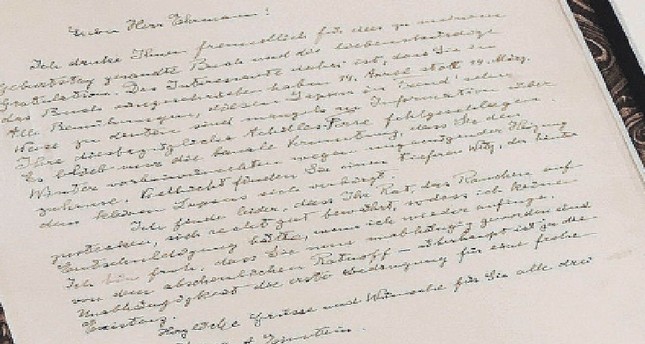 Lieber Herr Ehrmann!
Ich danke Ihnen freundlich für das zu meinem
Geburtstag gesandte Buch und die liebenswürdige
Gratulation. Das Interessante dabei ist, dass Sie in
das Buch eingeschrieben haben 14. April statt 14. März.
Alle Bemühungen, diesen Lapsus in Freud'scher
Weise zu deuten sind mangels an Information über
Ihre diesbezügliche Achilles-Ferse fehlgeschlagen.
Es blieb nur die banale Vermutung, dass Sie den
Winter wegen ungenügender Heizung
. Vielleicht finden Sie einen tieferen Witz, der hinter
dem kleinen Lapsus sich verbirgt.
Ich finde leider, dass Ihr Rat, das Rauchen auf
, sich recht gut bewährt, sodass ich keinen
Entschuldigung hätte, wenn ich wieder anfinge.
Ich bin froh, dass Sie nun unabhängig geworden sind
von dem abscheulichen Ratnoff – überhaupt ist ja die
Unabhängigkeit die erste Bedingung für eine frohe
Existenz.
Herzliche Grüsse und Wünsche für Sie alle drei
A. Einstein.